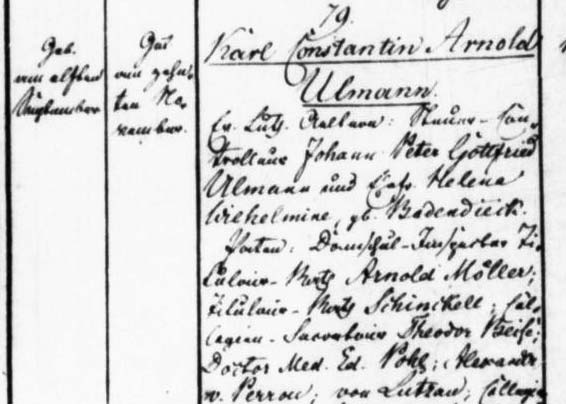 79.
Geb.
am elften
September
Get.
am zehn-
ten No-
vember.
Karl Constantin Arnold
Ulmann.
Ev. Luth. Aeltern: Steuer-Con-
trolleur Johann Peter Gottfried
Ulmann und Ehefr. Helena
Wilhelmine, gb. Badendieck.
Paten: Domschul-Inspector Ti-
tulair-Rath Arnold Möller;
Titulair-Rath Schinckell; Col-
legien-Secretair Theodor Beise;
Doctor Med. Ed. Pohl; Alexander
v. Perrou; von Lutzau; Collegien